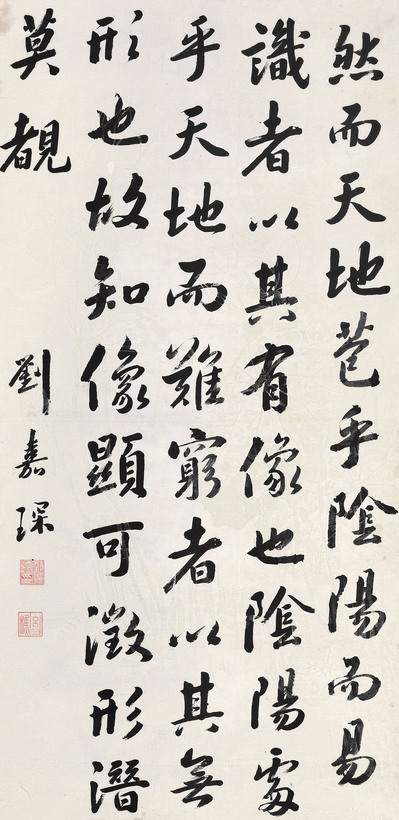 然而天地苞乎陰陽而易
識者以其有像也陰陽處
乎天地而難窮者以其無
形也故知像顯可徵形潛
莫覩
劉嘉琛